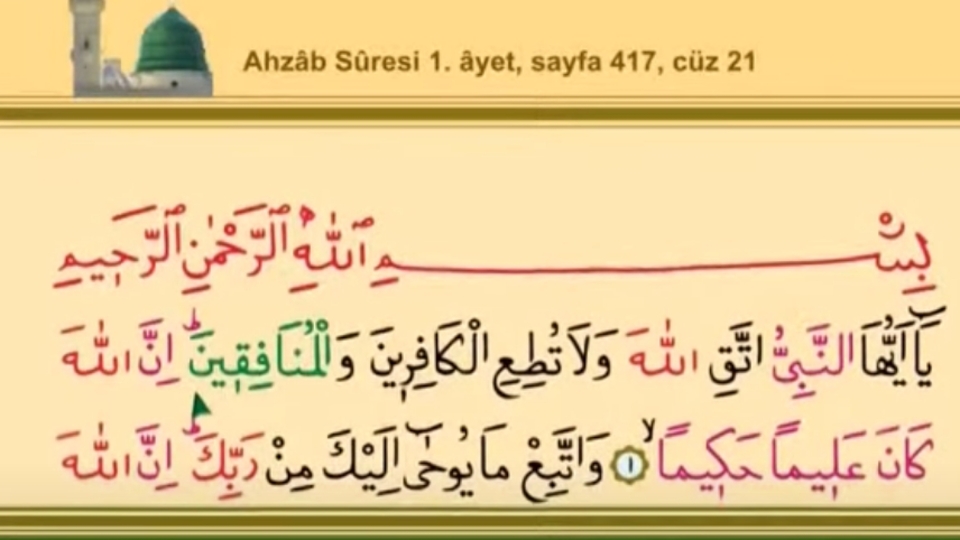 Ahzâb Sûresi 1. âyet, sayfa 417, cüz 21
بِسْمِ اللّٰهِ الرَّحْمٰنِ الرَّحِيمِ
يَٓا اَيُّهَا النَّبِيُّ اتَّقِ اللّٰهَ وَلَا تُطِعِ الْكَافِرِينَ وَالْمُنَافِقِينَۜ اِنَّ اللّٰهَ
كَانَ عَلِيمًا حَكِيمًاۙ ١ وَاتَّبِعْ مَا يُوحٰٓى اِلَيْكَ مِنْ رَبِّكَۜ اِنَّ اللّٰهَ